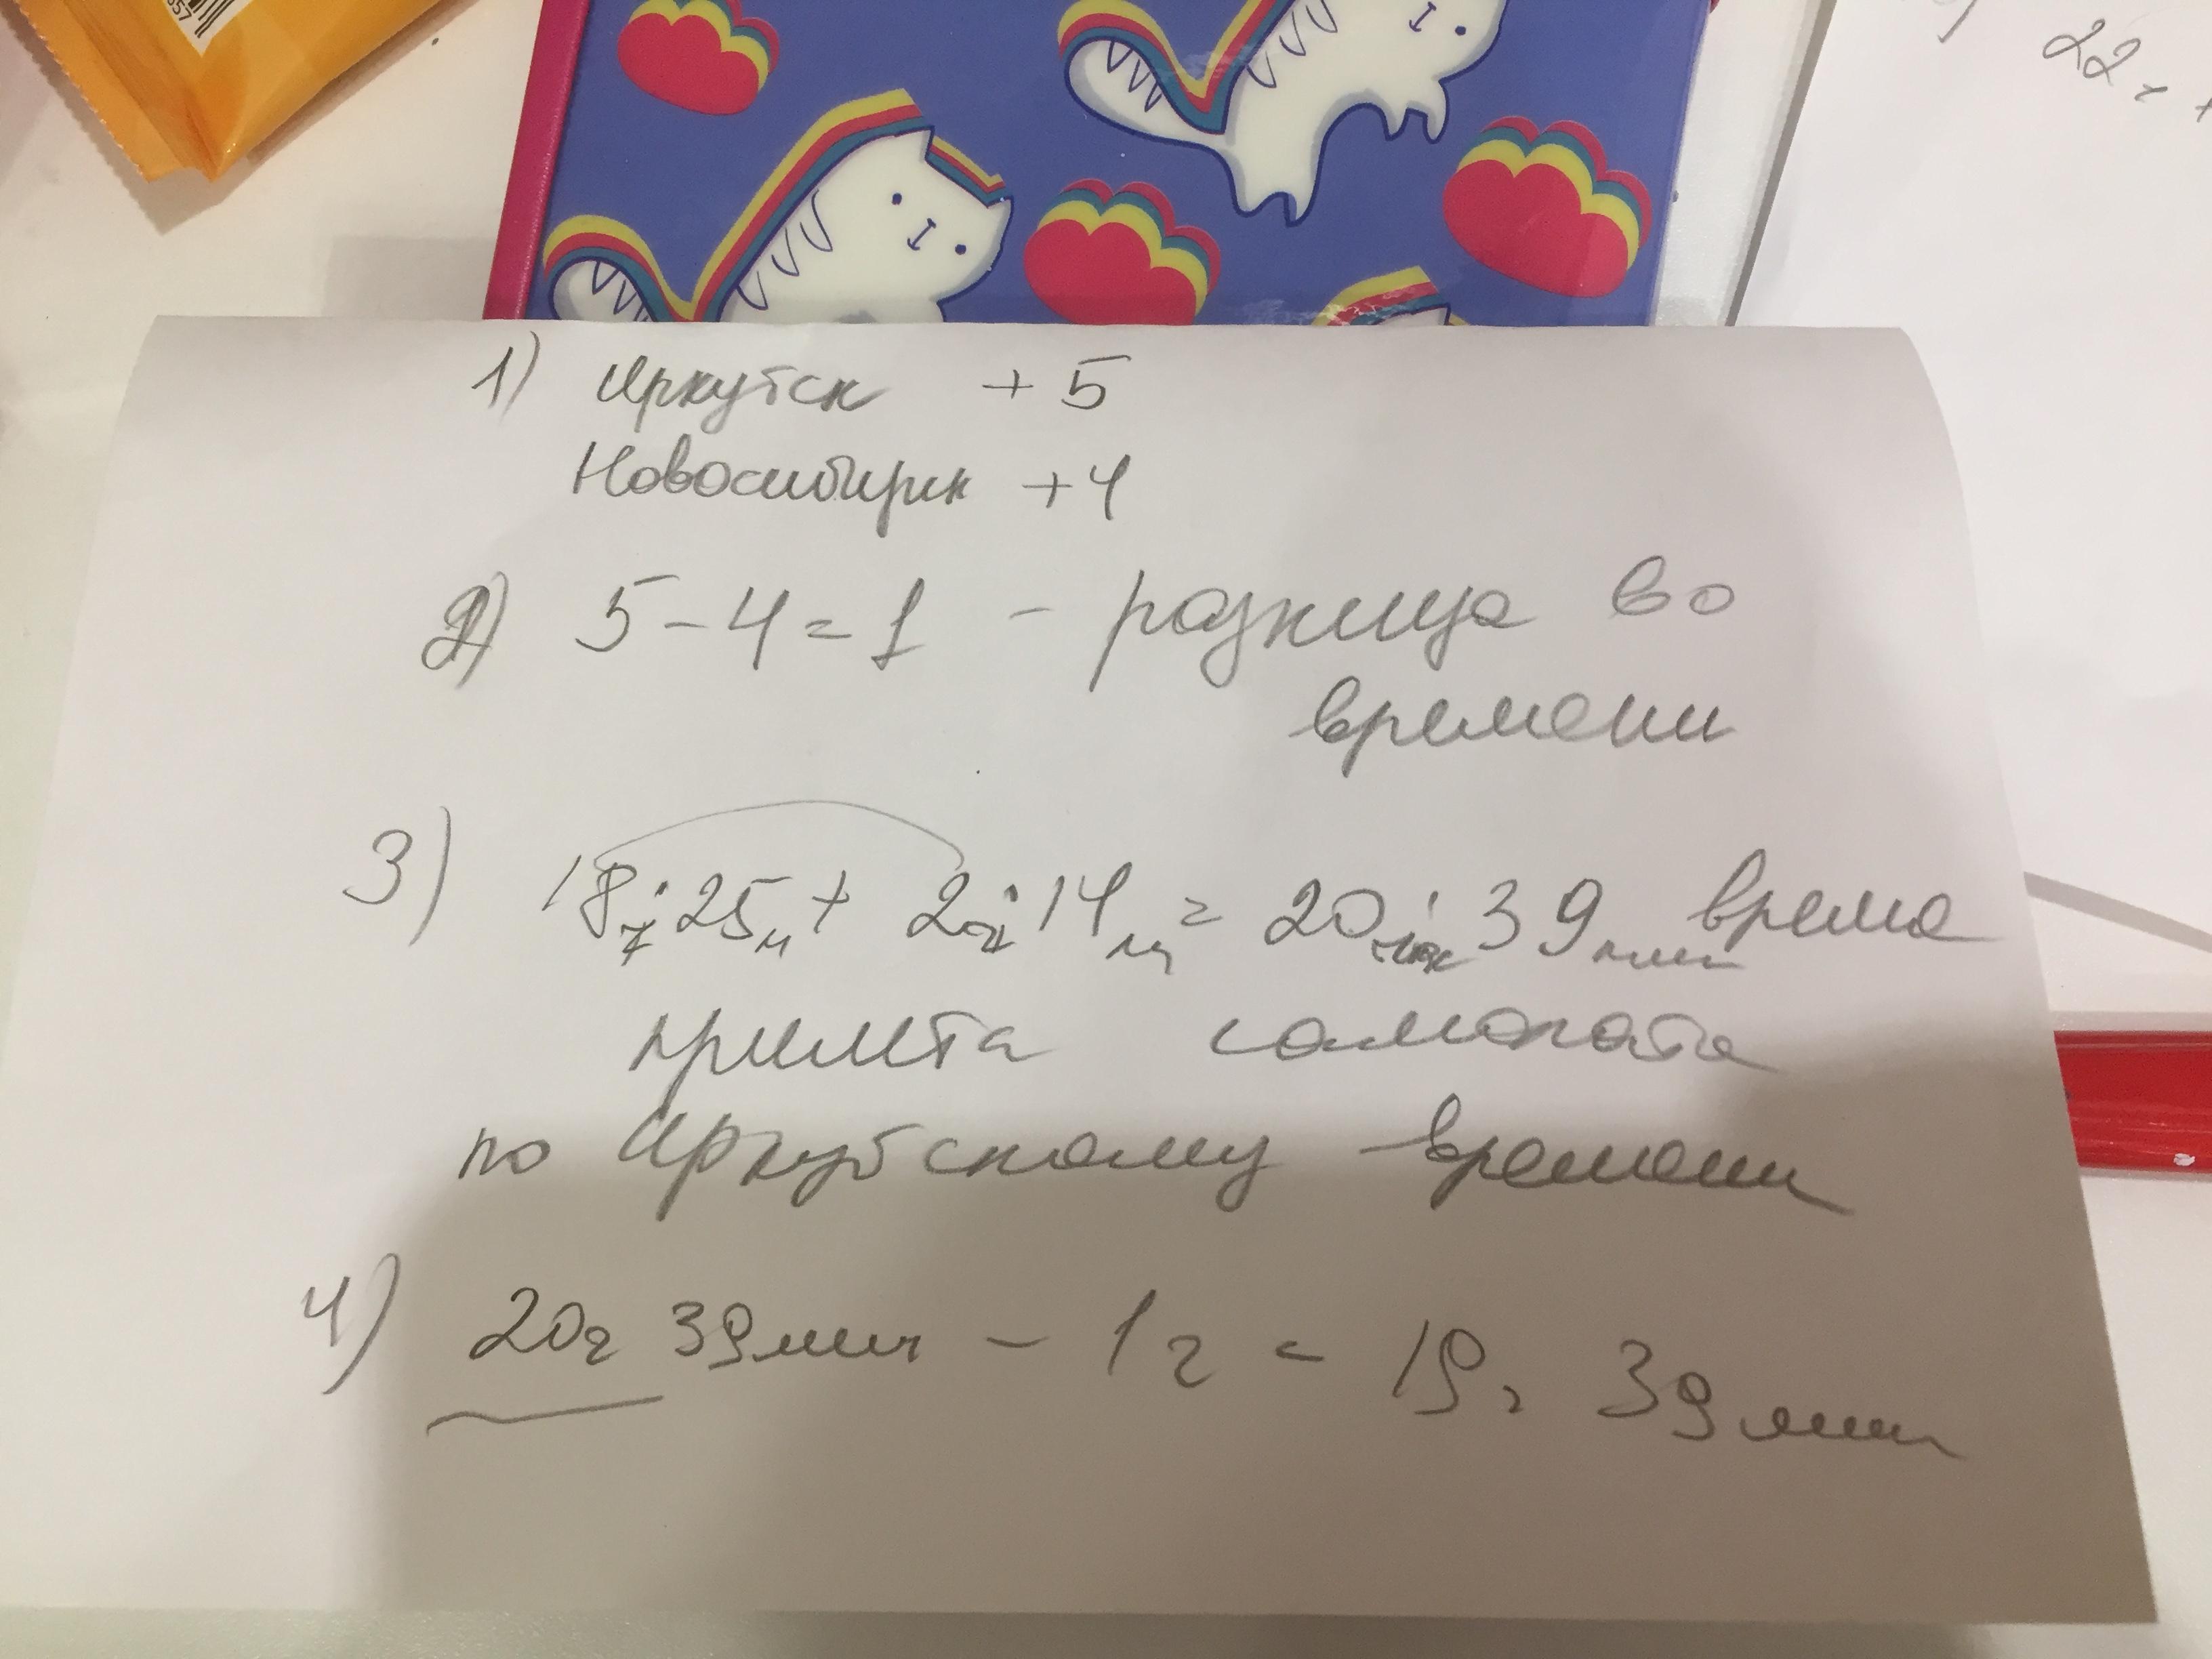 557
22 ч +
1) Иркутск + 5
Новосибирск + 4
2) 5 - 4 = 1 - разница во
времени
3) 18ч:25м + 2ч:14м = 20час:39мин время
прилёта самолёта
по Иркутскому времени
4) 20ч 39мин - 1ч = 19ч 39мин